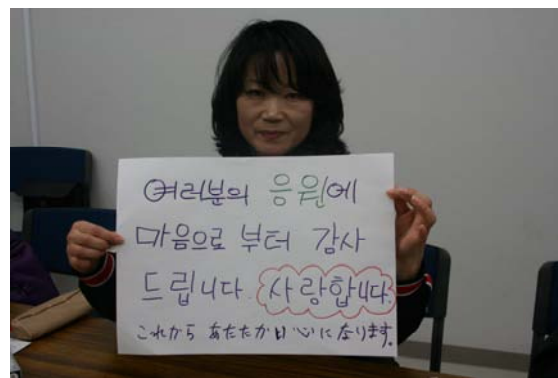 여러분의 응원에
마음으로 부터 감사
드립니다. 사랑합니다.
これから あたたか日 心に なります。